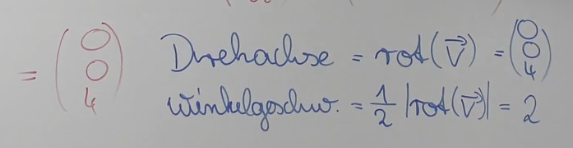 = (0 0 4) Drehachse = rot(v⃗) = (0 0 4)
Winkelgeschw. = 1/2 |rot(v⃗)| = 2